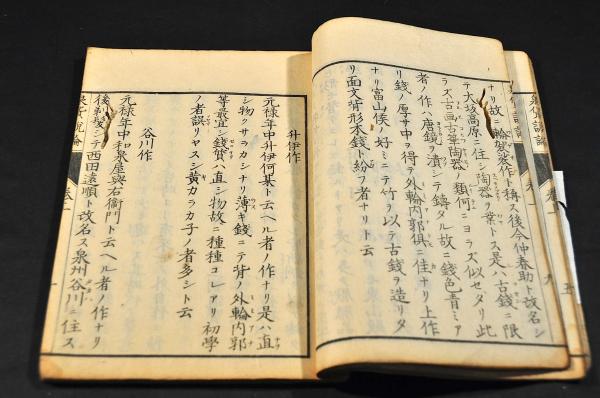 ナリ故ニ輪賀蒸作ト称ス後今仲春助ト改名シ
テ大坂高原ニ住シ陶器ヲ業トス是ハ古銭ニ限
ラス古画古筆陶器ノ類何ニヨラス似セダリ此
者ノ作ハ唐鏡ヲ潰シテ鋳タル故ニ銭色青ミア
リ銭ノ厚サ中ヲ得テ外輪内郭倶ニ佳ナリ上作
ナリ富山侯ノ好ミニテ竹ヲ以テ古銭ヲ造リタ
リ面文背形本銭ト紛フ者ナリト云
升伊作
元禄年中升伊何某ト云ヘル者ノ作ナリ是ハ直
シ物クサラカシナリ薄キ銭ニテ背ノ外輪内郭
等最宜シ銭質ハ直シ物故ニ種種コレアリ初學
ノ者誤リヤスシ黄カラカ子ノ者多シト云
谷川作
元禄年中和泉屋與右衞門ト云ヘル者ノ作ナリ
後剃髪シテ西田遠順ト改名ス泉州谷川ニ住ス